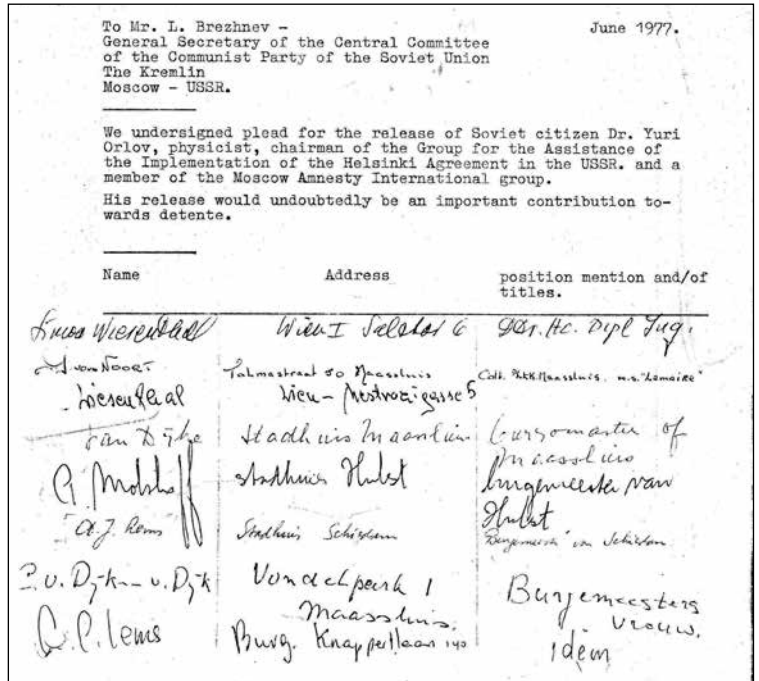 To Mr. L. Brezhnev - June 1977.
General Secretary of the Central Committee
of the Communist Party of the Soviet Union
The Kremlin
Moscow - USSR.
We undersigned plead for the release of Soviet citizen Dr. Yuri
Orlov, physicist, chairman of the Group for the Assistance of
the Implementation of the Helsinki Agreement in the USSR. and a
member of the Moscow Amnesty International group.
His release would undoubtedly be an important contribution to-
wards detente.
Name Address position mention and/of
titles.
Simon Wiesenthal Wien I Salztor 6 Dr. Hc. Dipl Ing.
van Noort Talmastraat 50 Maassluis m.s. "Lemaire"
Wiesenthal Wien - Nestroigasse 5
van Dijke Stadhuis Maassluis burgomaster of
Maassluis
stadhuis Hulst burgemeester van
Hulst
A.J. Lems Stadhuis Schiedam Burgemeester van Schiedam
P. v. Dijk - v. Dijk Vondelpark 1 Burgemeesters
Maassluis. vrouw.
C. P. Lems Burg. Knappertlaan 140 idem